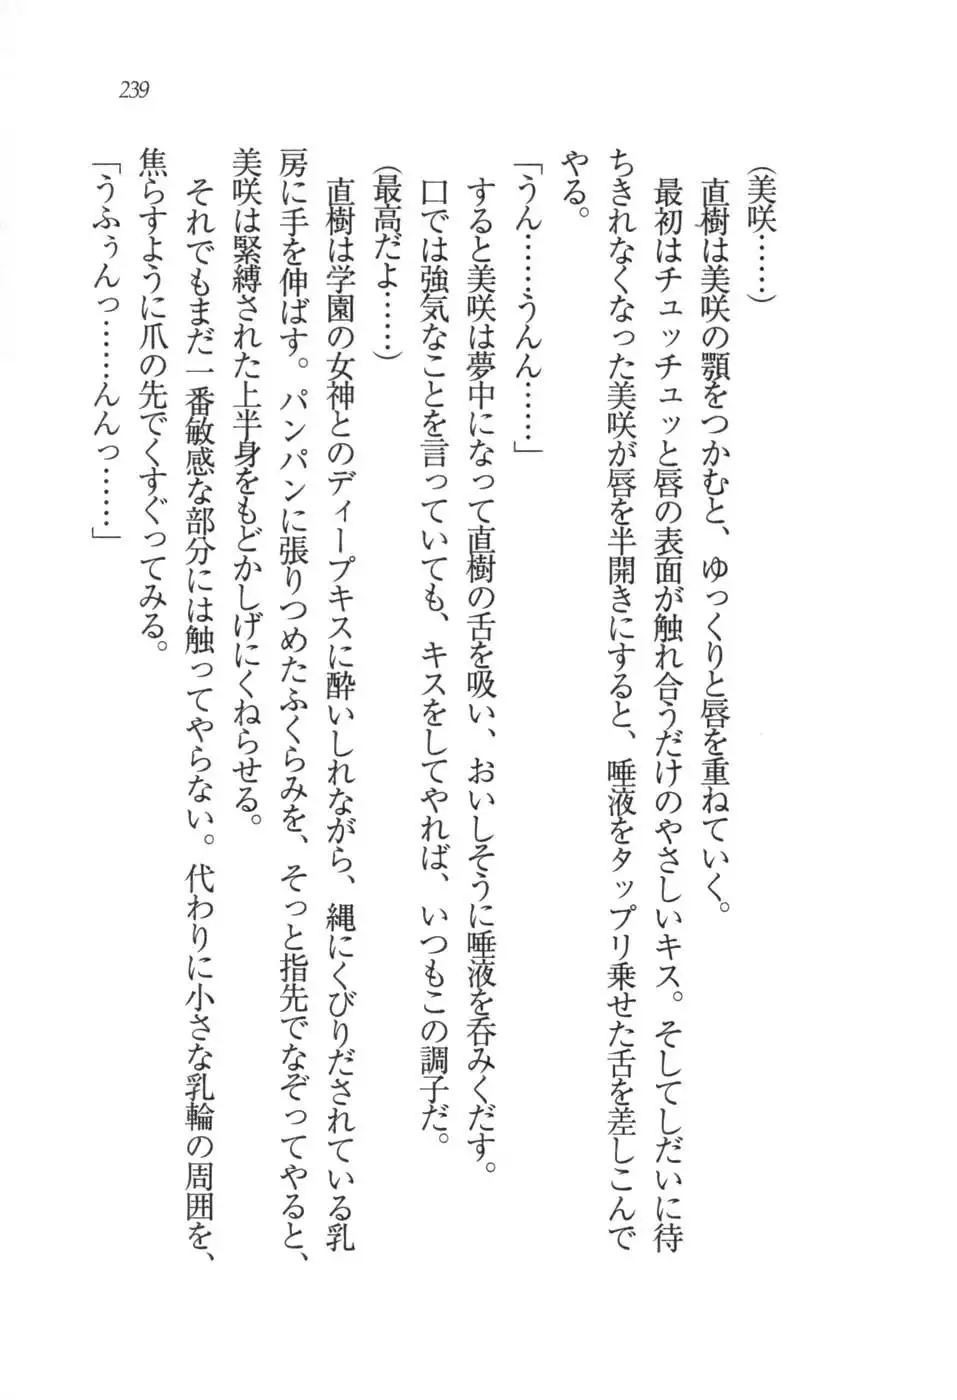 239
(美咲……)
直樹は美咲の顎をつかむと、ゆっくりと唇を重ねていく。
最初はチュッチュッと唇の表面が触れ合うだけのやさしいキス。そしてしだいに待
ちきれなくなった美咲が唇を半開きにすると、唾液をタップリ乗せた舌を差しこんで
やる。
「うん……うんん……」
すると美咲は夢中になって直樹の舌を吸い、おいしそうに唾液を呑みくだす。
口では強気なことを言っていても、キスをしてやれば、いつもこの調子だ。
(最高だよ……)
直樹は学園の女神とのディープキスに酔いしれながら、縄にくびりだされている乳
房に手を伸ばす。パンパンに張りつめたふくらみを、そっと指先でなぞってやると、
美咲は緊縛された上半身をもどかしげにくねらせる。
それでもまだ一番敏感な部分には触ってやらない。代わりに小さな乳輪の周囲を、
焦らすように爪の先でくすぐってみる。
「うふぅんっ……んんっ……」